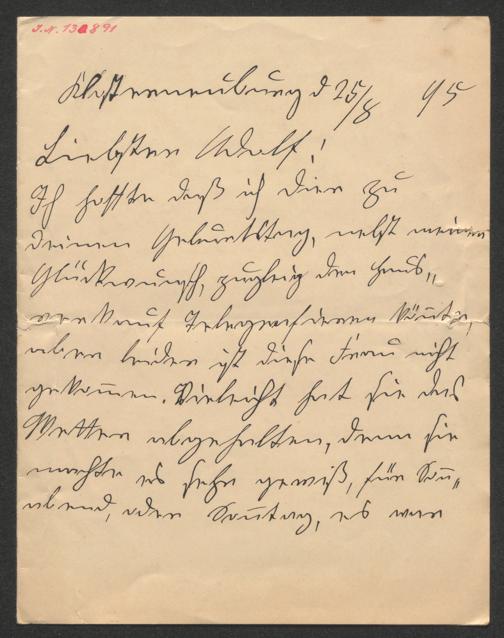 I.N. 130891
Klosterneuburg d 25/8 95
Liebster Adolf!
Ich hoffte daß ich Dier zu
deinen Geburtstag, nebst meinen
Glückwunsch, zugleig den Haus„
verkauf Telegrafieren kön̄te,
aber leider ist diese Frau nicht
gekom̄en. Vieleicht hat sie das
Wetter abgehalten, denn sie
machte es sehr gewiß, für Son̄„
abend, oder Son̄tag, es war